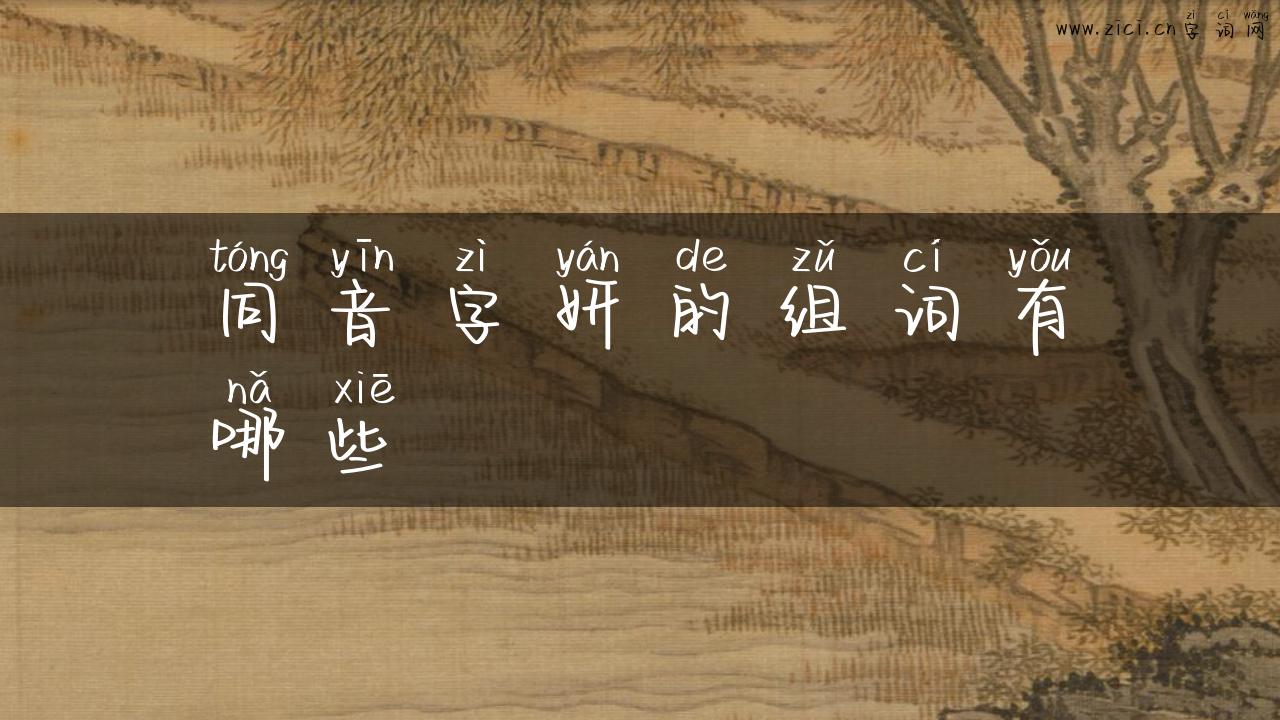 zì cí wǎng
www.zici.cn字词网
tóng yīn zì yán de zǔ cí yǒu
同音字妍的组词有
nǎ xiē
哪些